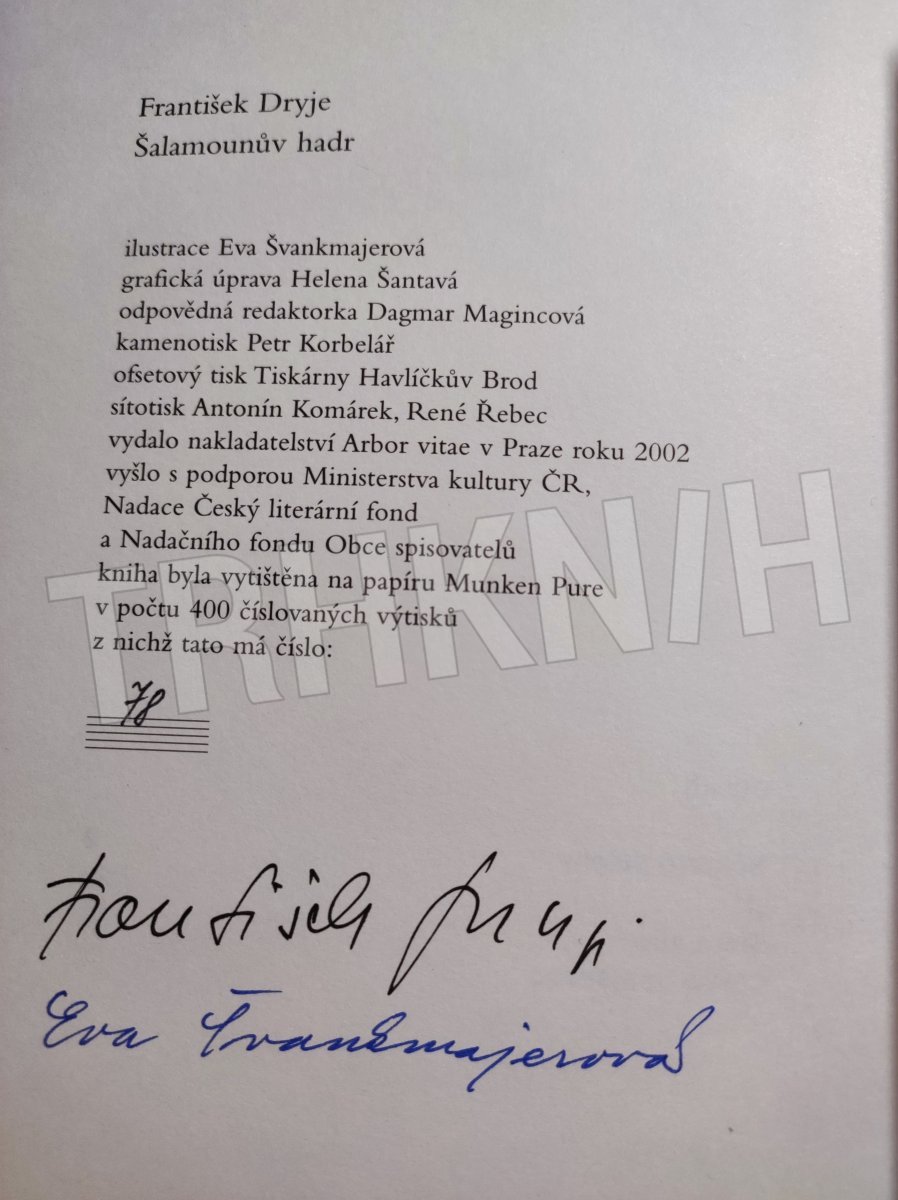 František Dryje
Šalamounův hadr
ilustrace Eva Švankmajerová
grafická úprava Helena Šantavá
odpovědná redaktorka Dagmar Magincová
kamenotisk Petr Korbelář
ofsetový tisk Tiskárny Havlíčkův Brod
sítotisk Antonín Komárek, René Řebec
vydalo nakladatelství Arbor vitae v Praze roku 2002
vyšlo s podporou Ministerstva kultury ČR,
Nadace Český literární fond
a Nadačního fondu Obce spisovatelů
kniha byla vytištěna na papíru Munken Pure
v počtu 400 číslovaných výtisků
z nichž tato má číslo:
78
František Dryje
Eva Švankmajerová
TRHKNIH